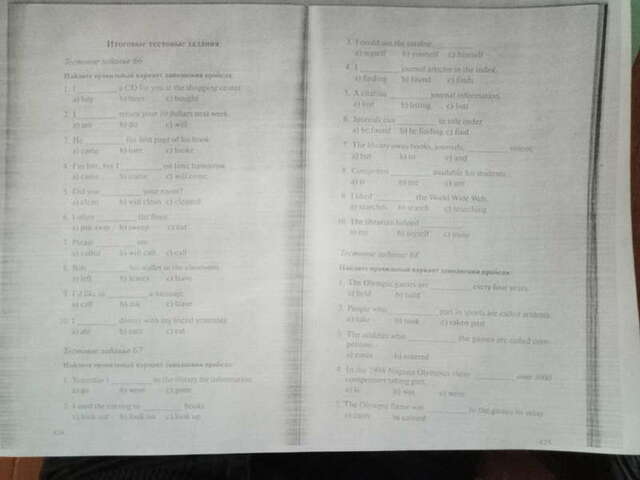 Итоговые тестовые задания
Тестовое задание 66
Найдите правильный вариант заполнения пробела:
1. I ______ a CD for you at the shopping center.
a) buy b) buys c) bought
2. I ______ return your 10 dollars next week.
b) do c) will
3. He ______ the first page of his book.
a) came b) tore c) broke
4. I'm late, but I ______ on time tomorrow.
a) came b) came c) will come
5. Did you ______ your room?
a) clean b) will clean c) cleaned
6. I often ______ the floor.
a) put away b) sweep c) eat
7. Please ______ me.
a) called b) will call c) call
8. Bob ______ his wallet in the classroom.
a) left b) leaves c) leave
9. I'd like to ______ a message.
a) call b) ask c) leave
10. I ______ dinner with my friend yesterday.
a) ate b) eats c) eat
Тестовое задание 67
Найдите правильный вариант заполнения пробела:
1. Yesterday I ______ to the library for information.
a) go b) went c) gone
2. I used the catalog to ______ books.
a) look out b) look on c) look up
424
3. I could use the catalog ______
a) myself b) yourself c) himself
4. I ______ journal articles in the index.
a) finding b) found c) finds
5. A citation ______ journal information.
a) list b) listing c) lists
6. Journals can ______ in the index.
a) be found b) be finding c) find
7. The library owns books, journals, ______ videos.
a) but b) or c) and
8. Computers ______ available for students.
a) is b) are c) am
9. I liked ______ the World Wide Web.
a) searches b) search c) searching
10. The librarian helped ______
a) me b) myself c) mine
Тестовое задание 68
Найдите правильный вариант заполнения пробела:
1. The Olympic games are ______ every four years.
a) held b) hold
2. People who ______ part in sports are called athletes.
a) take b) took c) taken part
3. The athletes who ______ the games are called
a) enter b) entered
4. In the 1998 Nagano Olympics there ______ over 3000
competitors taking part.
a) is b) was c) were
5. The Olympic flame was ______ to the games by relay.
a) carry b) carried
425